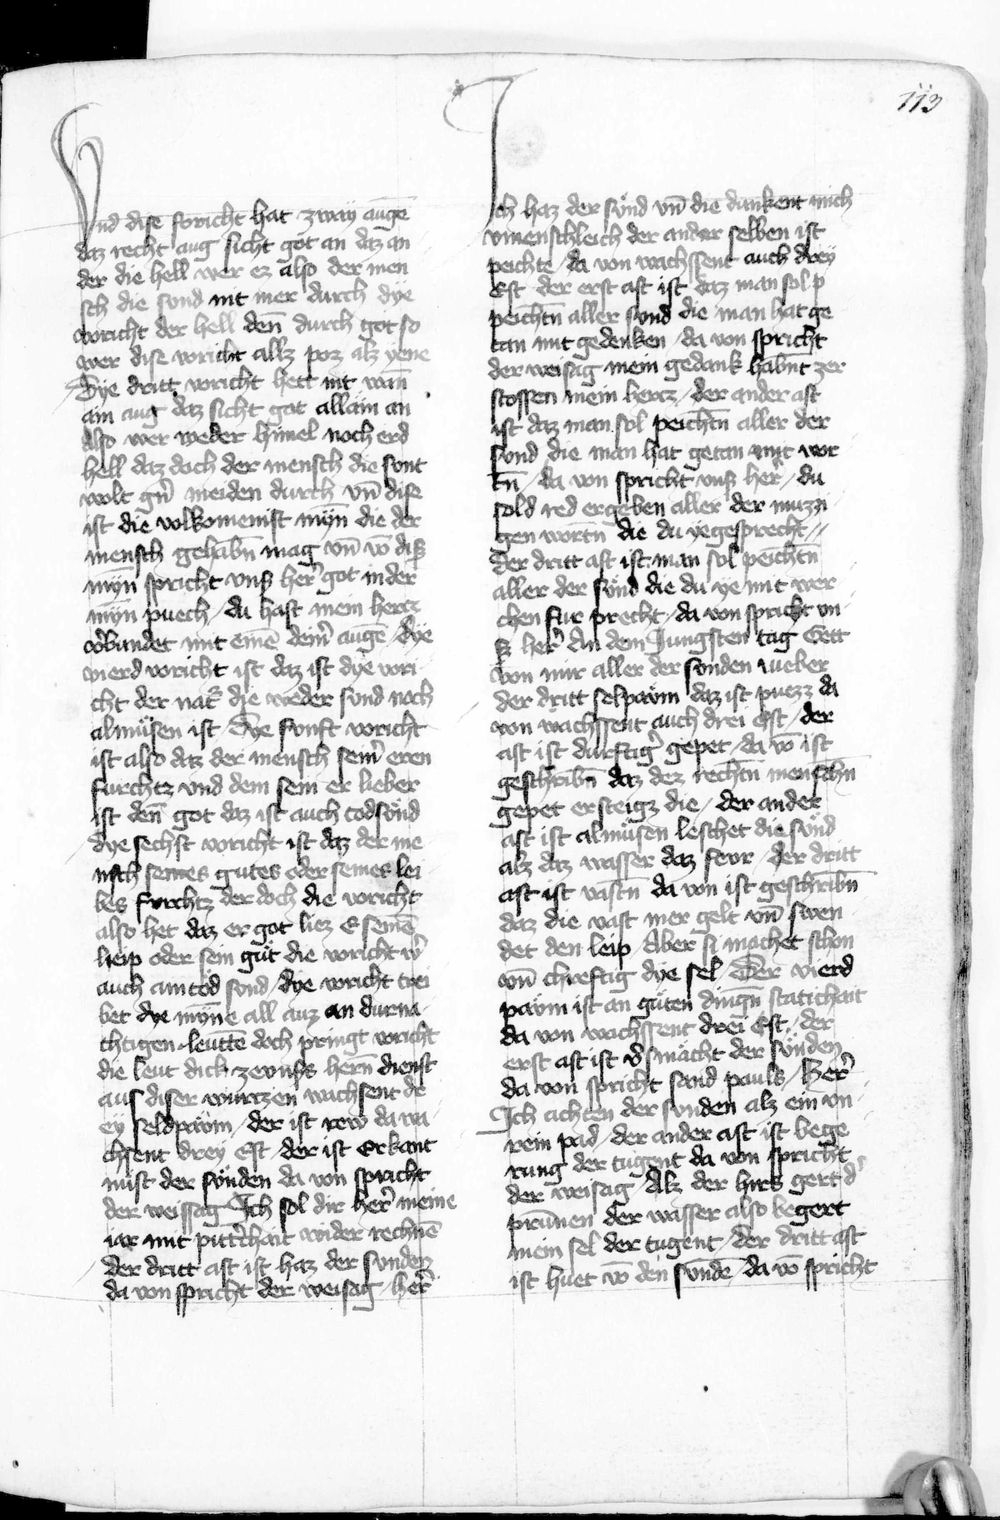 113
Vnd dise foricht hat zway auge
daz recht aug sicht got an daz an
der die hell wer ez also der men
sch die sund nit mer durch dye
voricht der hell den̄ durch got so
wer dise voricht allz poz alz yene
Dye dritt voricht hett nit wan̄
ain aug daz sicht got allain an
Also wer weder himel noch erd
hell daz doch der mensch die sunt
wolt gn̄ meiden durch vn̄ dise
ist die volkomenist myn̄ die der
mensch gehabn̄ mag vn̄ vō diser
myn̄ spricht vnß her got in der
myn̄ puech / du hast mein hercz
v̄wundet mit einē deinr̄ augē / dye
vierd voricht ist daz ist dye vori
cht der nat̄ dye weder sund noch
almüsen ist / Dye funft voricht
ist also daz der mensch seinr̄ eren
furchtz vnd dem sein er lieber
ist den̄ got daz ist auch todsünd
dye sechst voricht ist daz der me
nsch seines gutes oder seines lei
bes furchtz der doch die voricht
also het daz er got liez E seinē
lieip oder sein güt die voricht w̄
auch ain tod sund / dye voricht trei
bet dye myn̄e all auz an durna
chtigen leuttē doch pringt voricht
die leut dick zevnsß hern̄ dienst
aus diser wurtzen wachsent dr
ey seldpäwm / der ist rew da wa
chsent drey Est / der ist Erkant
nust der sünden da von spricht
der weissag Ich sol dir her̄ meine
iar mit pittrchait wider rechnē
der dritt ast ist haz der sunden
da von spricht der weisag / her̄
Ich haz der sünd vn̄ die dunkent mich
vmenschleich der ander selben ist
peichte / da von wachssent auch drey
Est der erst ast ist daz man sol p
peichtn̄ aller sund die man hat ge
tan mit gedenken / da von spricht
der weisag mein gedank habn̄t zer
stossen mein hercz / der ander ast
ist daz man sol peichtn̄ aller der
sund die man hat getan mit wor
tn̄ / da von spricht vnß her̄ / du
sold red ergeben aller der muzzi
gen wortn̄ die du ye gesprecht //
der dritt ast ist man sol peichtn̄
aller der sünd die du ye mit wer
chen fur precht / da von spricht vn
ß her̄ An dem Jungsten tag Gett
von mir aller der sunden vueber
der dritt selpawm daz ist puezz da
von wachssent auch drei Est / der
ast ist durftigr̄ gepet / da vō ist
geschribn̄ daz dez rechtn̄ menschn̄
gepet ersteigz die / der ander
ast ist almüsen leschet die sünd
alz daz wasser daz feur / der dritt
ast ist vastn̄ da von ist geschribn̄
daz die vast mer gelt vn̄ swen
det den leip / Aber si machet schon
vn̄ chreftig dye sel / Der vierd
pawm ist an güten dingn̄ statichait
da von wachssent drei Est / der
erst ast ist v̄smächt der sünden
da von spricht sand pauls / Her̄
Ich achten der sunden alz ein vn
rein pad / der ander ast ist bege
rung der tugent da von spricht
der weisag / Alz der hirs gert d̄
prūnen der wasser also begert
mein sel der tugent / der dritt ast
ist huet vō den sundē / da vō spricht